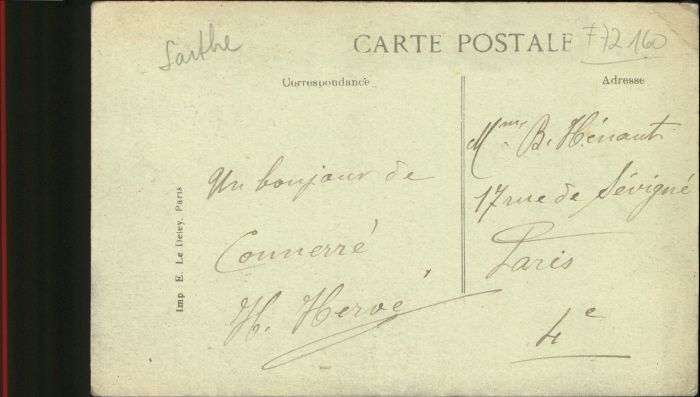 Sarthe
CARTE POSTALE
F72160
Correspondance
Adresse
Un bonjour de
Connerré
H. Hervé
Mme B. Hénault
17 rue de Sévigné
Paris
4e
Imp E. Le Deley, Paris